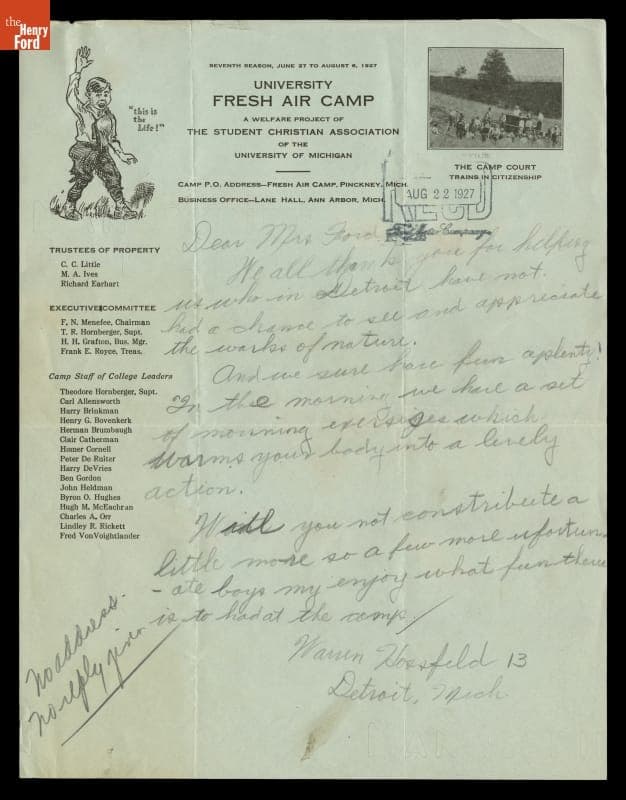 the
Henry
Ford
SEVENTH SEASON, JUNE 27 TO AUGUST 6, 1927
UNIVERSITY
FRESH AIR CAMP
A WELFARE PROJECT OF
THE STUDENT CHRISTIAN ASSOCIATION
OF THE
UNIVERSITY OF MICHIGAN
CAMP P.O. ADDRESS—FRESH AIR CAMP, PINCKNEY, MICH.
BUSINESS OFFICE—LANE HALL, ANN ARBOR, MICH.
"this is
the
Life!"
THE CAMP COURT
TRAINS IN CITIZENSHIP
AUG 22 1927
REC'D
Company
TRUSTEES OF PROPERTY
C. C. Little
M. A. Ives
Richard Earhart
EXECUTIVE COMMITTEE
F. N. Menefee, Chairman
T. R. Hornberger, Supt.
H. H. Grafton, Bus. Mgr.
Frank E. Royce, Treas.
Camp Staff of College Leaders
Theodore Hornberger, Supt.
Carl Allensworth
Harry Brinkman
Henry G. Bovenkerk
Herman Brumbaugh
Clair Catherman
Homer Cornell
Peter De Ruiter
Harry DeVries
Ben Gordon
John Heldman
Byron O. Hughes
Hugh M. McEachran
Charles A. Orr
Lindley R. Rickett
Fred VonVoightlander
Dear Mrs Ford
We all thank you for helping
us who in Detroit have not
had a chance to see and appreciate
the works of nature.
And we sure have fun aplenty!
In the morning we have a set
of morning exersizes which
warms your body into a lively
action.
Will you not constribute a
little more so a few more unfortun-
-ate boys my enjoy what fun there
is to had at the camp.
Warren Hossfeld 13
Detroit, Mich
No address.
No reply given